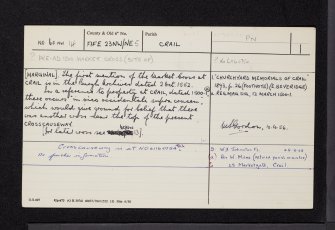 County & Old 6" No.
Parish
NO 60 NW 14
FIFE 23NW/NE 5
CRAIL
PN
PRE-AD 1500 MARKET CROSS (SITE OF)
(MARGINAL) The first mention of the market cross at
CRAIL is in the burgh archives dated 2nd 1582.
In a reference to property at CRAIL, dated 1500
there occurs in vico occidentalis supra crucem,
which would give ground for belief that there
was another cross near the top of the present
CROSSCAUSEWAY.
for later cross see
CROSSCAUSEWAY is at NO
no further information
1. CHURCHYARD MEMORIALS OF CRAIL
1893, p. 26 (FOOTNOTE) (E. BEVERIDGE)
2. REG. MAG. SIG., 12 MARCH
3 W.J. Johnston
4 Rev W. Mair (retired parish minister)
25 Marketgate, Crail